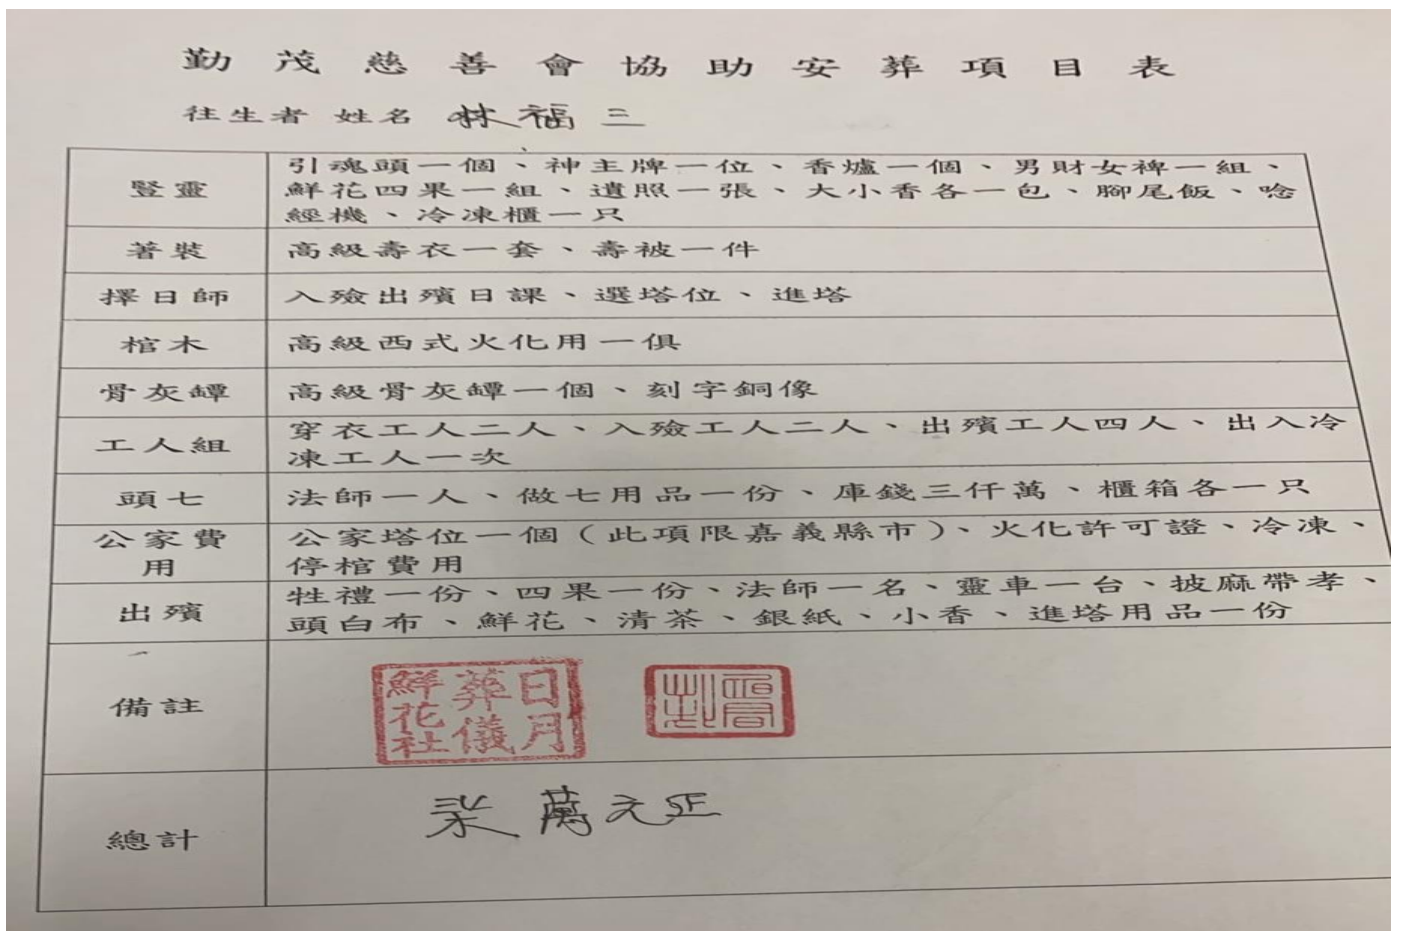 勤茂慈善會協助安葬項目表
往生者 姓名 林福三
豎靈
引魂頭一個、神主牌一位、香爐一個、男財女裨一組、
鮮花四果一組、遺照一張、大小香各一包、腳尾飯、唸
經機、冷凍櫃一只
著裝
高級壽衣一套、壽被一件
擇日師
入殮出殯日課、選塔位、進塔
棺木
高級西式火化用一俱
骨灰罈
高級骨灰罈一個、刻字銅像
工人組
穿衣工人二人、入殮工人二人、出殯工人四人、出入冷
凍工人一次
頭七
法師一人、做七用品一份、庫錢三仟萬、櫃箱各一只
公家費
用
公家塔位一個(此項限嘉義縣市)、火化許可證、冷凍、
停棺費用
出殯
牲禮一份、四果一份、法師一名、靈車一台、披麻帶孝、
頭白布、鮮花、清茶、銀紙、小香、進塔用品一份
備註
日月
葬儀
鮮花社
總計
萬元正